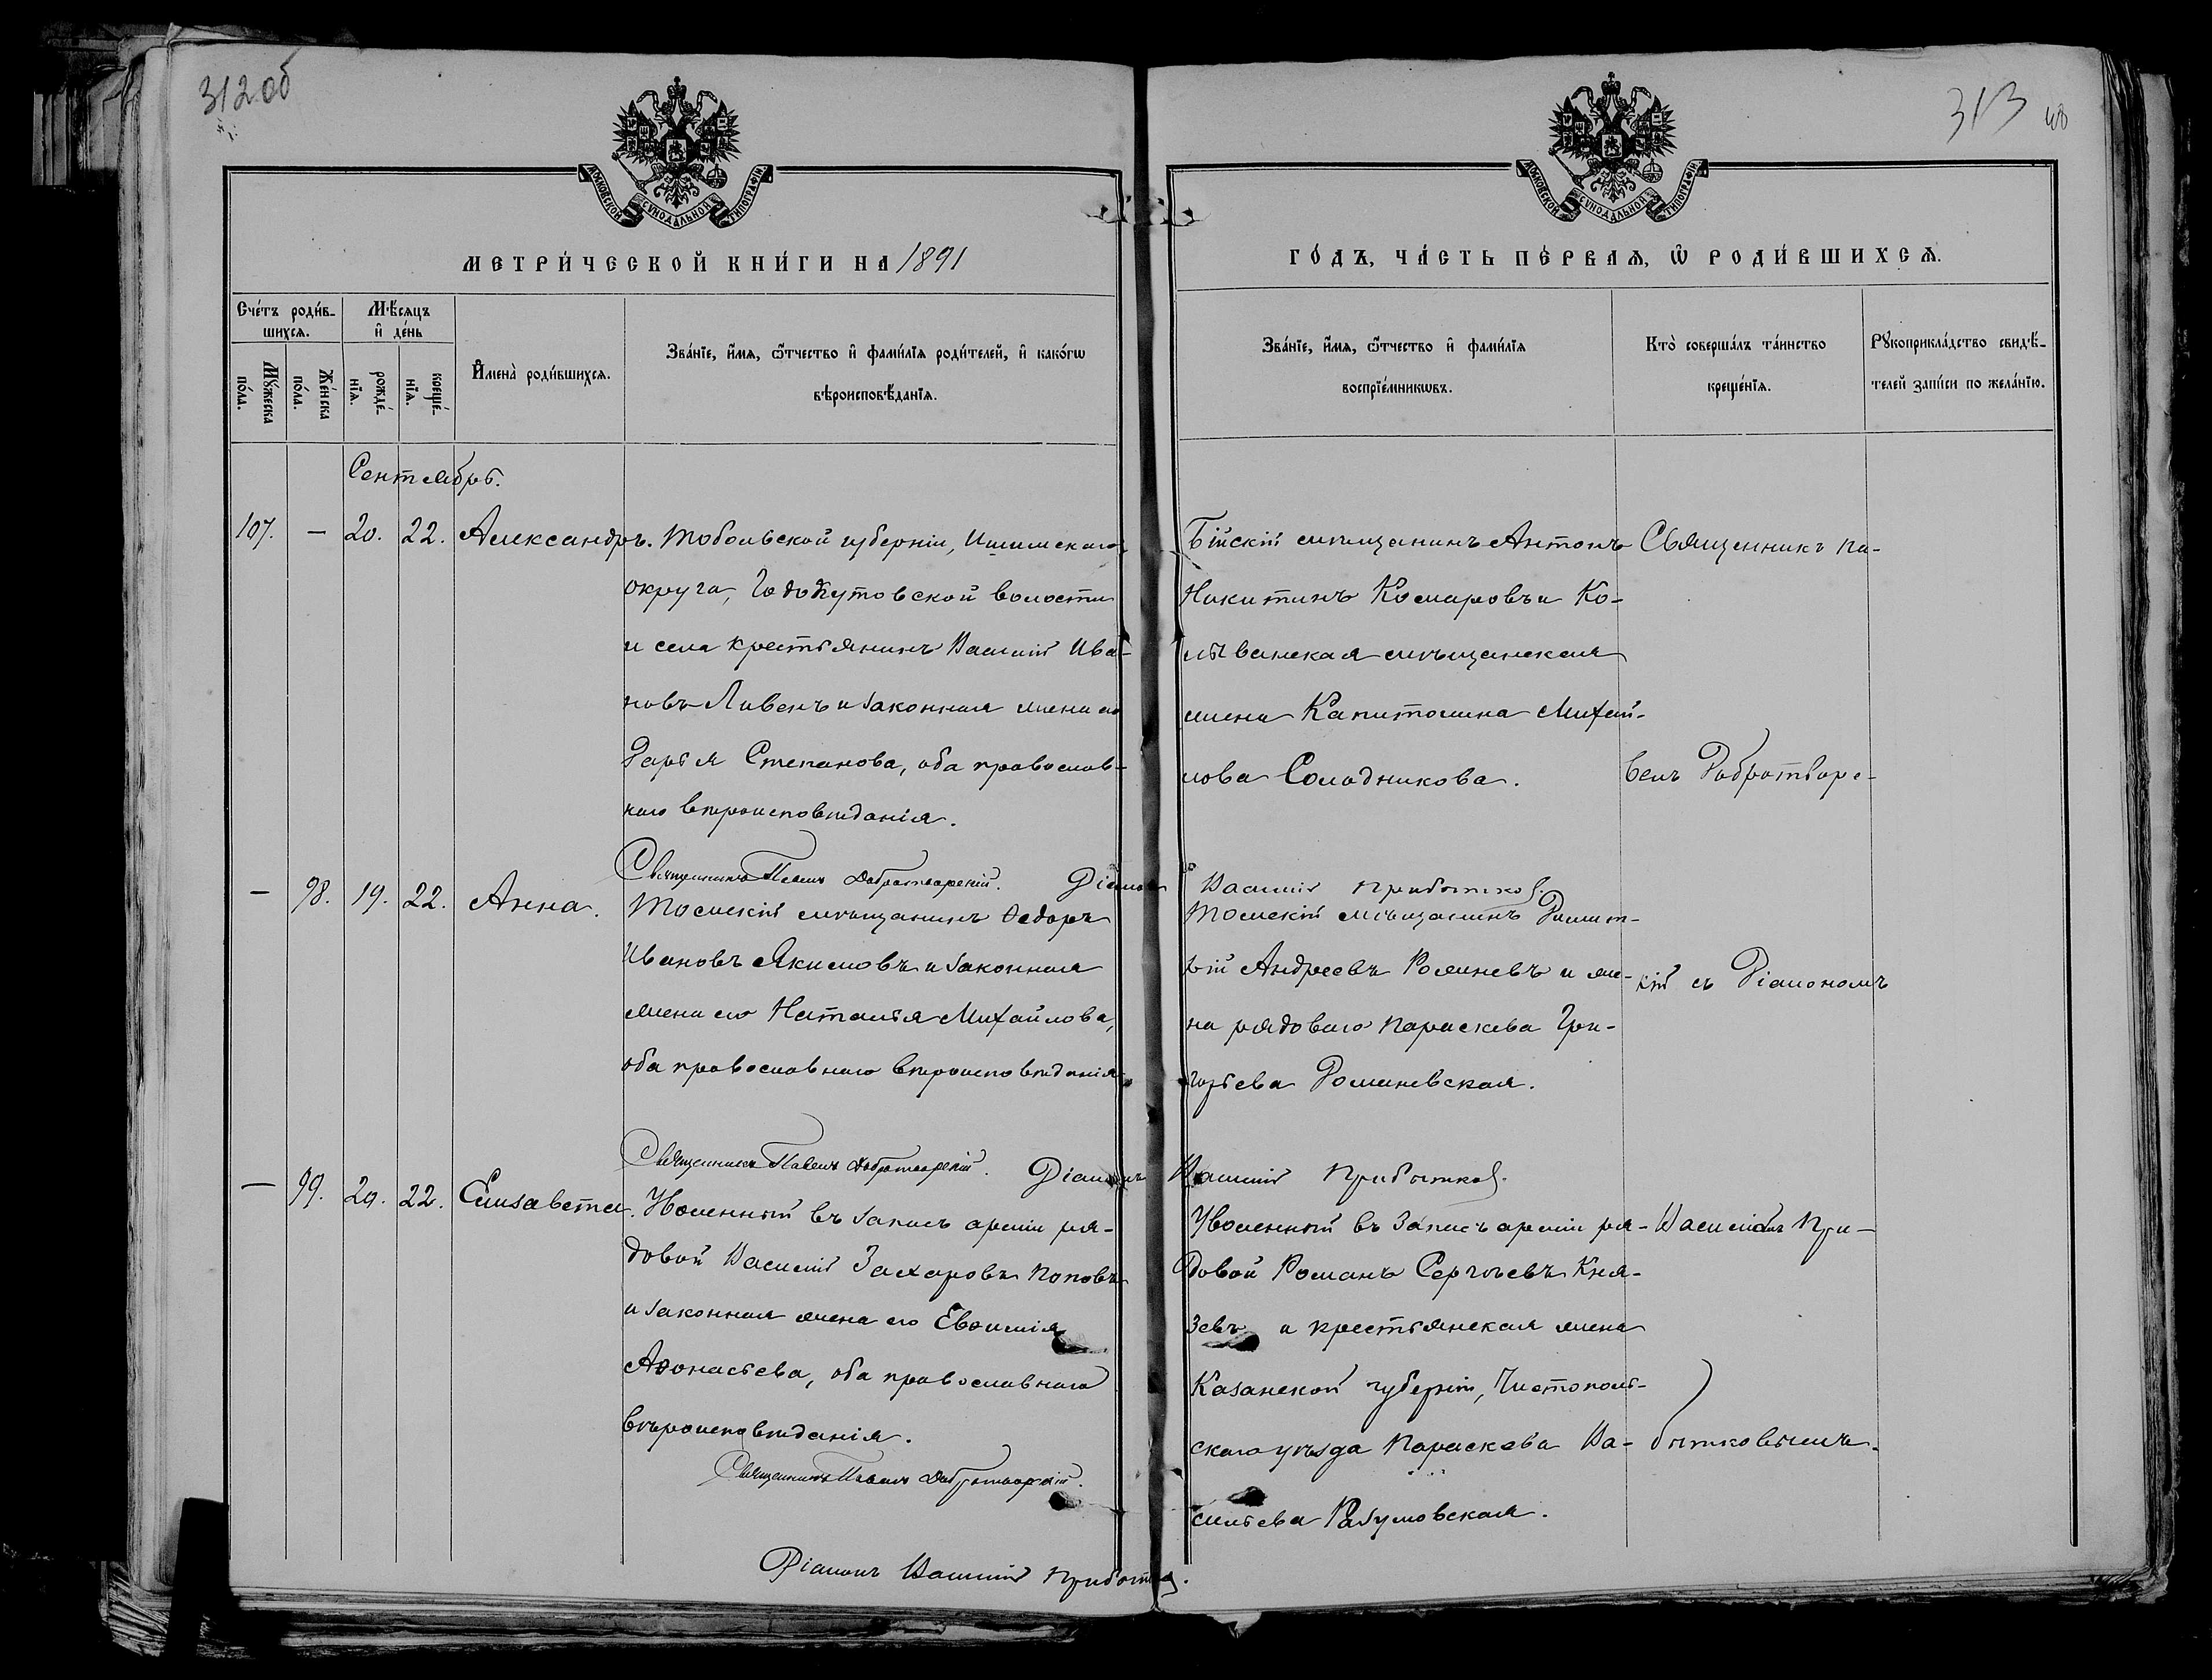 312 об
МОСКОВСКОЙ СѴНОДАЛЬНОЙ ТИПОГРАФІИ
МЕТРИ́ЧЕСКОЙ КНИ́ГИ НА 1891
Сче́тъ роди́в-
шихсѧ.
Мѣ́сѧцъ
и҆ де́нь
Мꙋ́жеска
по́ла.
Же́нска
по́ла.
рожде́-
нїѧ.
креще́-
нїѧ.
И҆мена̀ роди́вшихсѧ.
Зва́нїе, и҆́мѧ, ѿтчество и҆ фами́лїѧ роди́телей, и҆ како́гѡ
вѣроисповѣ́данїѧ.
Сентябрь.
107. — 20. 22. Александръ. Тобольской губерніи, Ишимскаго
округа, Волости
и села крестьянинъ Василій Ива-
новъ Ливенъ и законная жена его
Дарья Степанова, оба православ-
наго вѣроисповѣданія.
Священникъ Павелъ Добротворскій. Діаконъ
— 98. 19. 22. Анна. Томскій мѣщанинъ Ѳедоръ
Ивановъ Якимовъ и законная
жена его Наталья Михайлова,
оба православнаго вѣроисповѣданія.
Священникъ Павелъ Добротворскій. Діаконъ
— 99. 20. 22. Елизавета. Уволенный въ запасъ арміи ря-
довой Василій Захаровъ Поповъ
и законная жена его Евѳимія
Аѳонасьева, оба православнаго
вѣроисповѣданія.
Священникъ Павелъ Добротворскій.
Діаконъ Василій Прибытковъ.
313
МОСКОВСКОЙ СѴНОДАЛЬНОЙ ТИПОГРАФІИ
ГО́ДЪ, ЧА́СТЬ ПЕ́РВАѦ, Ѡ҆ РОДИ́ВШИХСѦ.
Зва́нїе, и҆́мѧ, ѿтчество и҆ фами́лїѧ
воспрїе́мникѡвъ.
Кто̀ соверша́лъ та́инство
креще́нїѧ.
Рꙋкоприкла́дство свидѣ́-
телей за́писи по жела́нїю.
Бійскій мѣщанинъ Антонъ
Никитинъ Комаровъ и Ко-
лыванская мѣщанская
жена Капитолина Михай-
лова Солодникова.
Василій Прибытковъ.
Томскій мѣщанинъ Димит-
рій Андреевъ Романевъ и же-
на рядоваго Параскева Гри-
горьева Романевская.
Василій Прибытковъ.
Уволенный въ запасъ арміи ря-
довой Романъ Сергѣевъ Кня-
зевъ и крестьянская жена
Казанской губерніи, Чистополь-
скаго уѣзда Параскева Ва-
сильева Разумовская.
Священникъ Па-
велъ Добротворс-
кій съ Діакономъ
Василіемъ При-
бытковымъ.